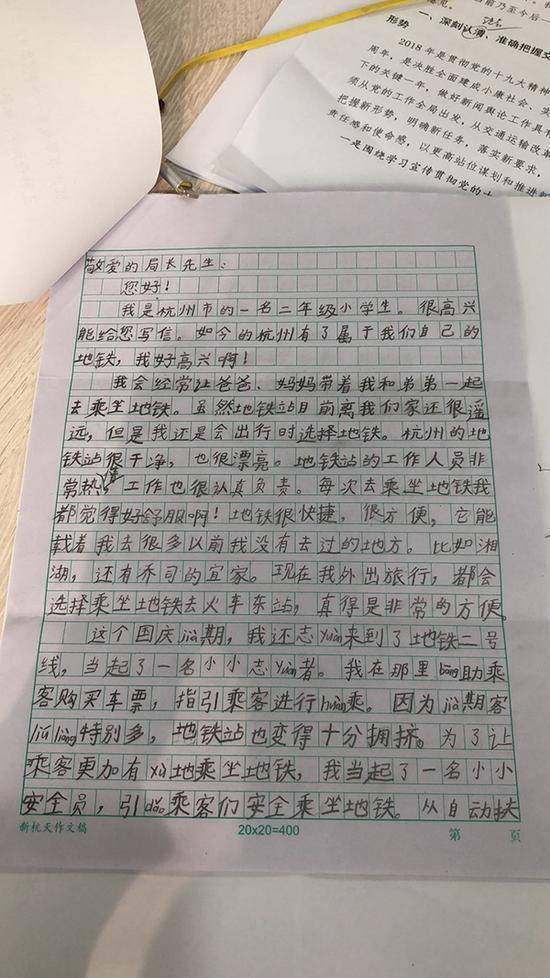 一、深刻认清、准确把握
形势
2018年是贯彻党的十九大精神
周年，是决胜全面建成小康社会、实
下的关键一年，做好新闻舆论工作具
须从党的工作全局出发，从交通运输改革
把握新形势，明确新任务，落实新要求，
责任感和使命感，以更高站位谋划和推进
一是围绕学习宣传贯彻党的十
敬爱的局长先生：
您好！
我是杭州市的一名二年级小学生。很高兴
能给您写信。如今的杭州有了属于我们自己的
地铁，我好高兴啊！
我会经常让爸爸、妈妈带着我和弟弟一起
去乘坐地铁。虽然地铁站目前离我们家还很遥
远，但是我还是会出行时选择地铁。杭州的地
铁站很干净，也很漂亮。地铁站的工作人员非
常热情工作也很认真负责。每次去乘坐地铁我
都觉得好舒服啊！地铁很快捷，很方便，它能
载着我去很多以前我没有去过的地方。比如湘
湖，还有乔司的宜家。现在我外出旅行，都会
选择乘坐地铁去火车东站，真得是非常的方便。
这个国庆jià期，我还志yuàn来到了地铁二号
线，当起了一名小小志yuàn者。我在那里bāng助乘
客购买车票，指引乘客进行huàn乘。因为jià期客
liú liàng特别多，地铁站也变得十分拥挤。为了让
乘客更加有xù地乘坐地铁，我当起了一名小小
安全员，引dǎo乘客们安全乘坐地铁。从自动扶
新杭天作文稿 20x20=400 第 页